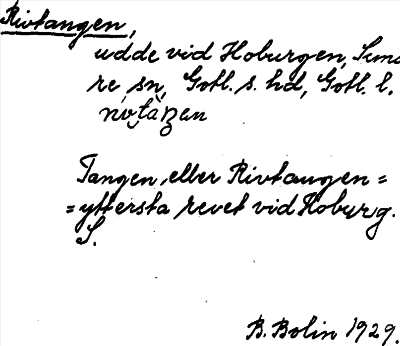 Rivtangen,
udde vid Hoburgen, Sund
re sn, Gotl. s. hd, Gotl. l.
Tangen, eller Rivtangen =
= yttersta revet vid Hoburg.
S.
B. Bolin 1929.